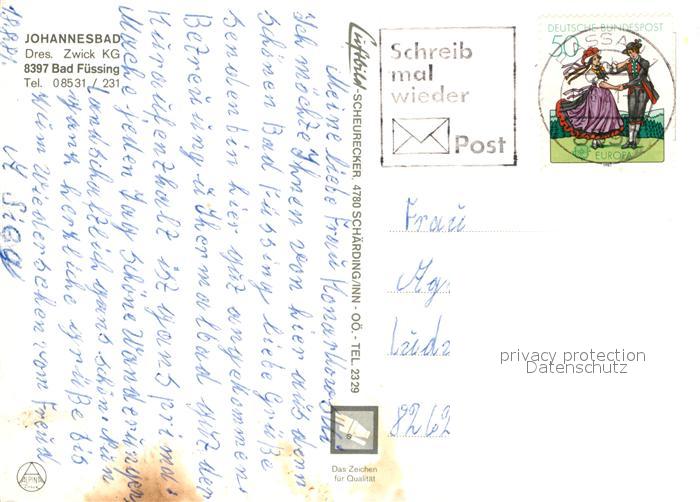 JOHANNESBAD
Dres. Zwick KG
8397 Bad Füssing
Tel. 08531 / 231
Luftbild-SCHEURECKER, 4780 SCHÄRDING/INN - OÖ. - TEL. 2329
Schreib
mal
wieder
Post
DEUTSCHE BUNDESPOST
50
EUROPA
Meine liebe Frau
Ich möchte Ihnen von hier aus dem
schönen Bad Füssing liebe Grüße
senden bin hier gut angekommen
Betreuung u Thermalbad gut der
Kuraufenthalt ist ganz prima
Mache jeden Tag schöne Wanderungen
Landschaftlich ganz schön. Nun
ganz herzliche Grüße bis
zum Wiedersehen von
Frau
Ag.
8262
privacy protection
Datenschutz
Das Zeichen
für Qualität